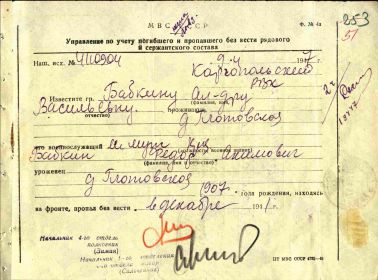 МВС СССР
Ф. № 4а
253
51
Управление по учету погибшего и пропавшего без вести рядового
и сержантского состава
Наш. исх. № 4110904
9.4 1947
Каргопольский
РВК
Известите гр. Бабкину Ал-дру
(фамилия, имя)
Васильевну
отчество)
проживающ
д Плотовская
что военнослужащий
его муж кр-ц
Бабкин Федор Акимович
(фамилия, имя и отчество)
уроженец
д Плотовская
1907 года рождения, находясь
на фронте, пропал без вести в декабре 1941 г.
Начальник 4-го отдела
полковник
Начальник 1-го отделения
4-го отдела майор